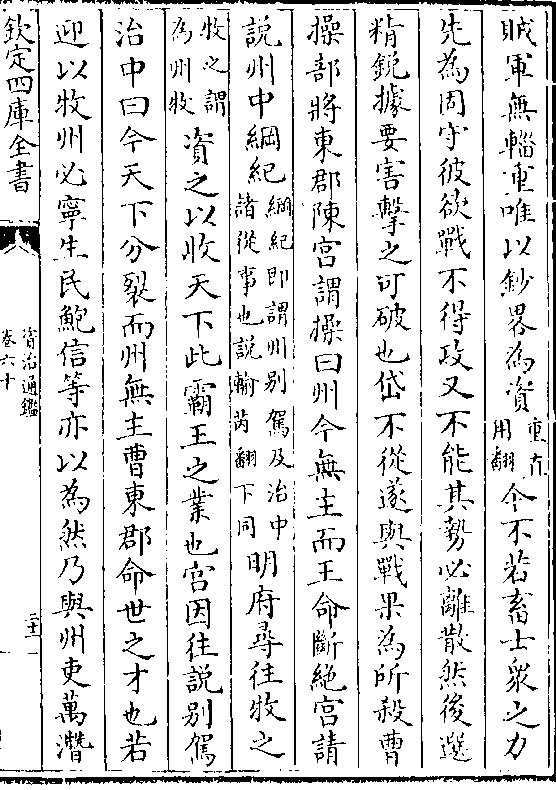 賊軍無輜重唯以鈔畧為資
重直
用翻
今不若畜士衆之力
先為固守彼欲戰不得攻又不能其勢必離散然後選
精鋭據要害擊之可破也岱不從遂與戰果為所殺曹
操部將東郡陳宫謂操曰州今無主而王命斷絶宫請
說州中綱紀
綱紀即謂州别駕及治中
諸從事也說輸芮翻下同
明府尋往牧之
牧之謂
為州牧
資之以收天下此霸王之業也宫因往説别駕
治中曰今天下分裂而州無主曹東郡命世之才也若
迎以牧州必寧生民鮑信等亦以為然乃與州吏萬潛
欽定四庫全書
資治通鑑
卷六十